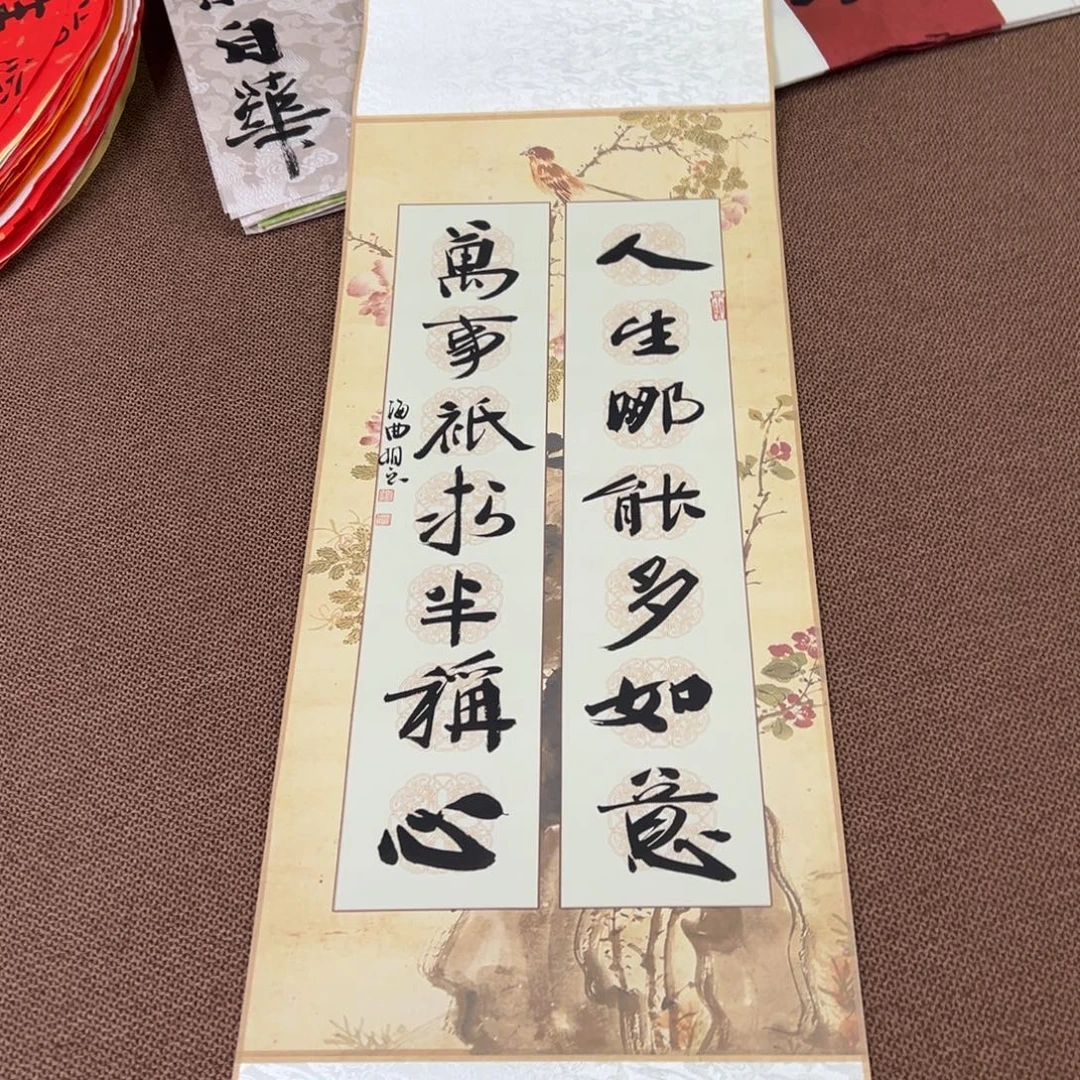 人生哪能多如意
萬事祇求半稱心
海曲明志
自華